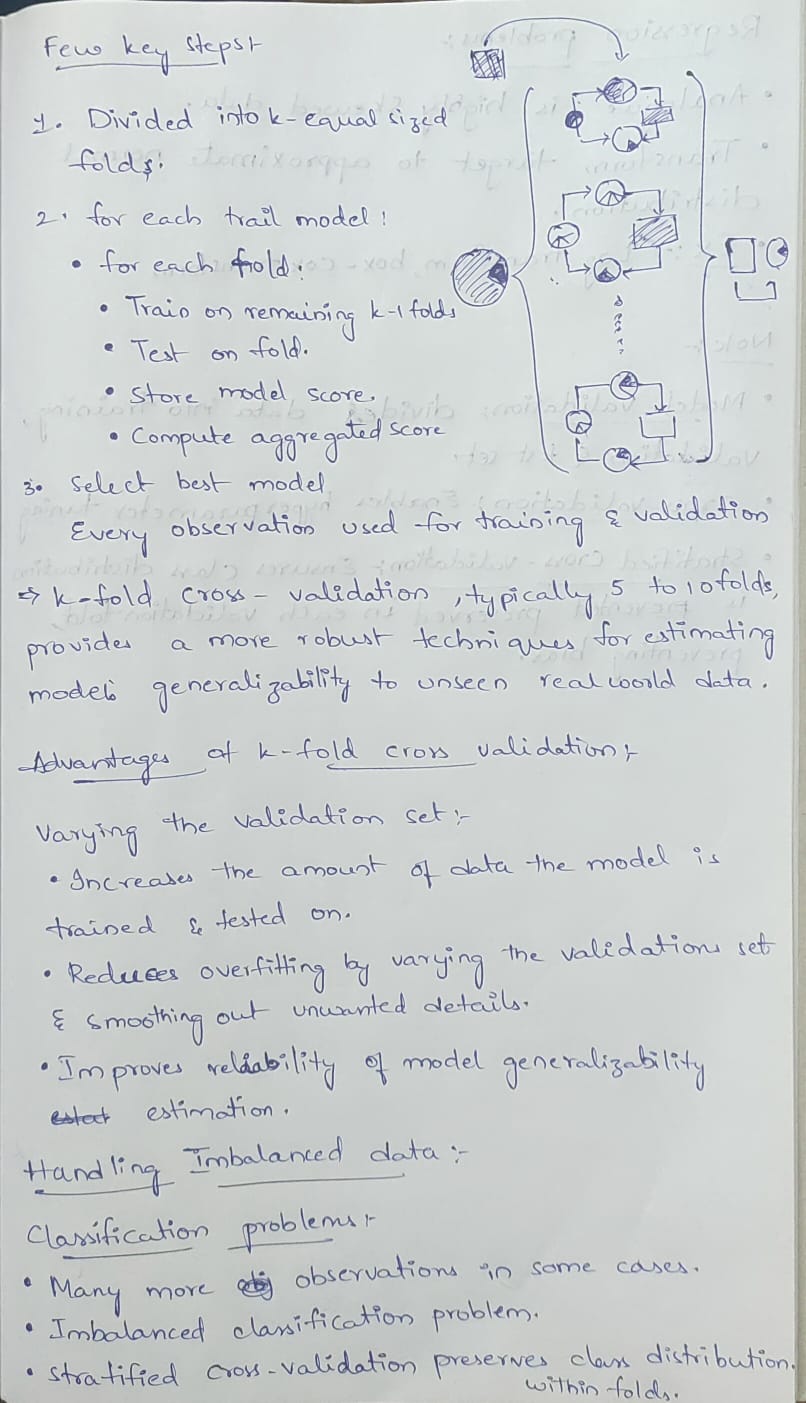 Few key Steps:-
1. Divided into k-equal sized
folds:
2. for each trail model:
• for each fold:
• Train on remaining k-1 folds
• Test on fold.
• Store model score.
• Compute aggregated score
3. Select best model
Every observation used for training & validation
⇒ k-fold cross-validation, typically 5 to 10 folds,
provides a more robust techniques for estimating
models generalizability to unseen real world data.
Advantages of k-fold cross validation:-
Varying the validation set:-
• Increases the amount of data the model is
trained & tested on.
• Reduces overfitting by varying the validations set
& smoothing out unwanted details.
• Improves reliability of model generalizability
estimation.
Handling Imbalanced data:-
Classification problems:-
• Many more observations in some cases.
• Imbalanced classification problem.
• Stratified cross-validation preserves class distribution.
within folds.